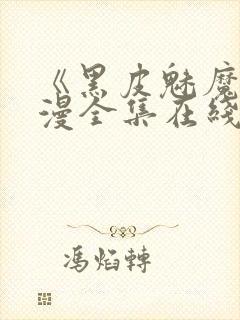 《黑皮魅魔
漫全集在綫
馮焰轉